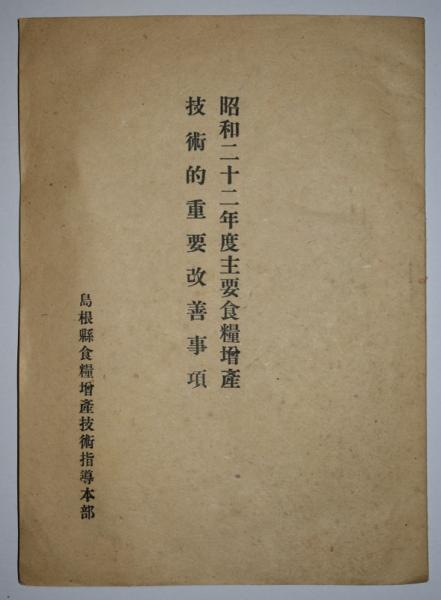 昭和二十二年度主要食糧增產
技術的重要改善事項
島根縣食糧增產技術指導本部